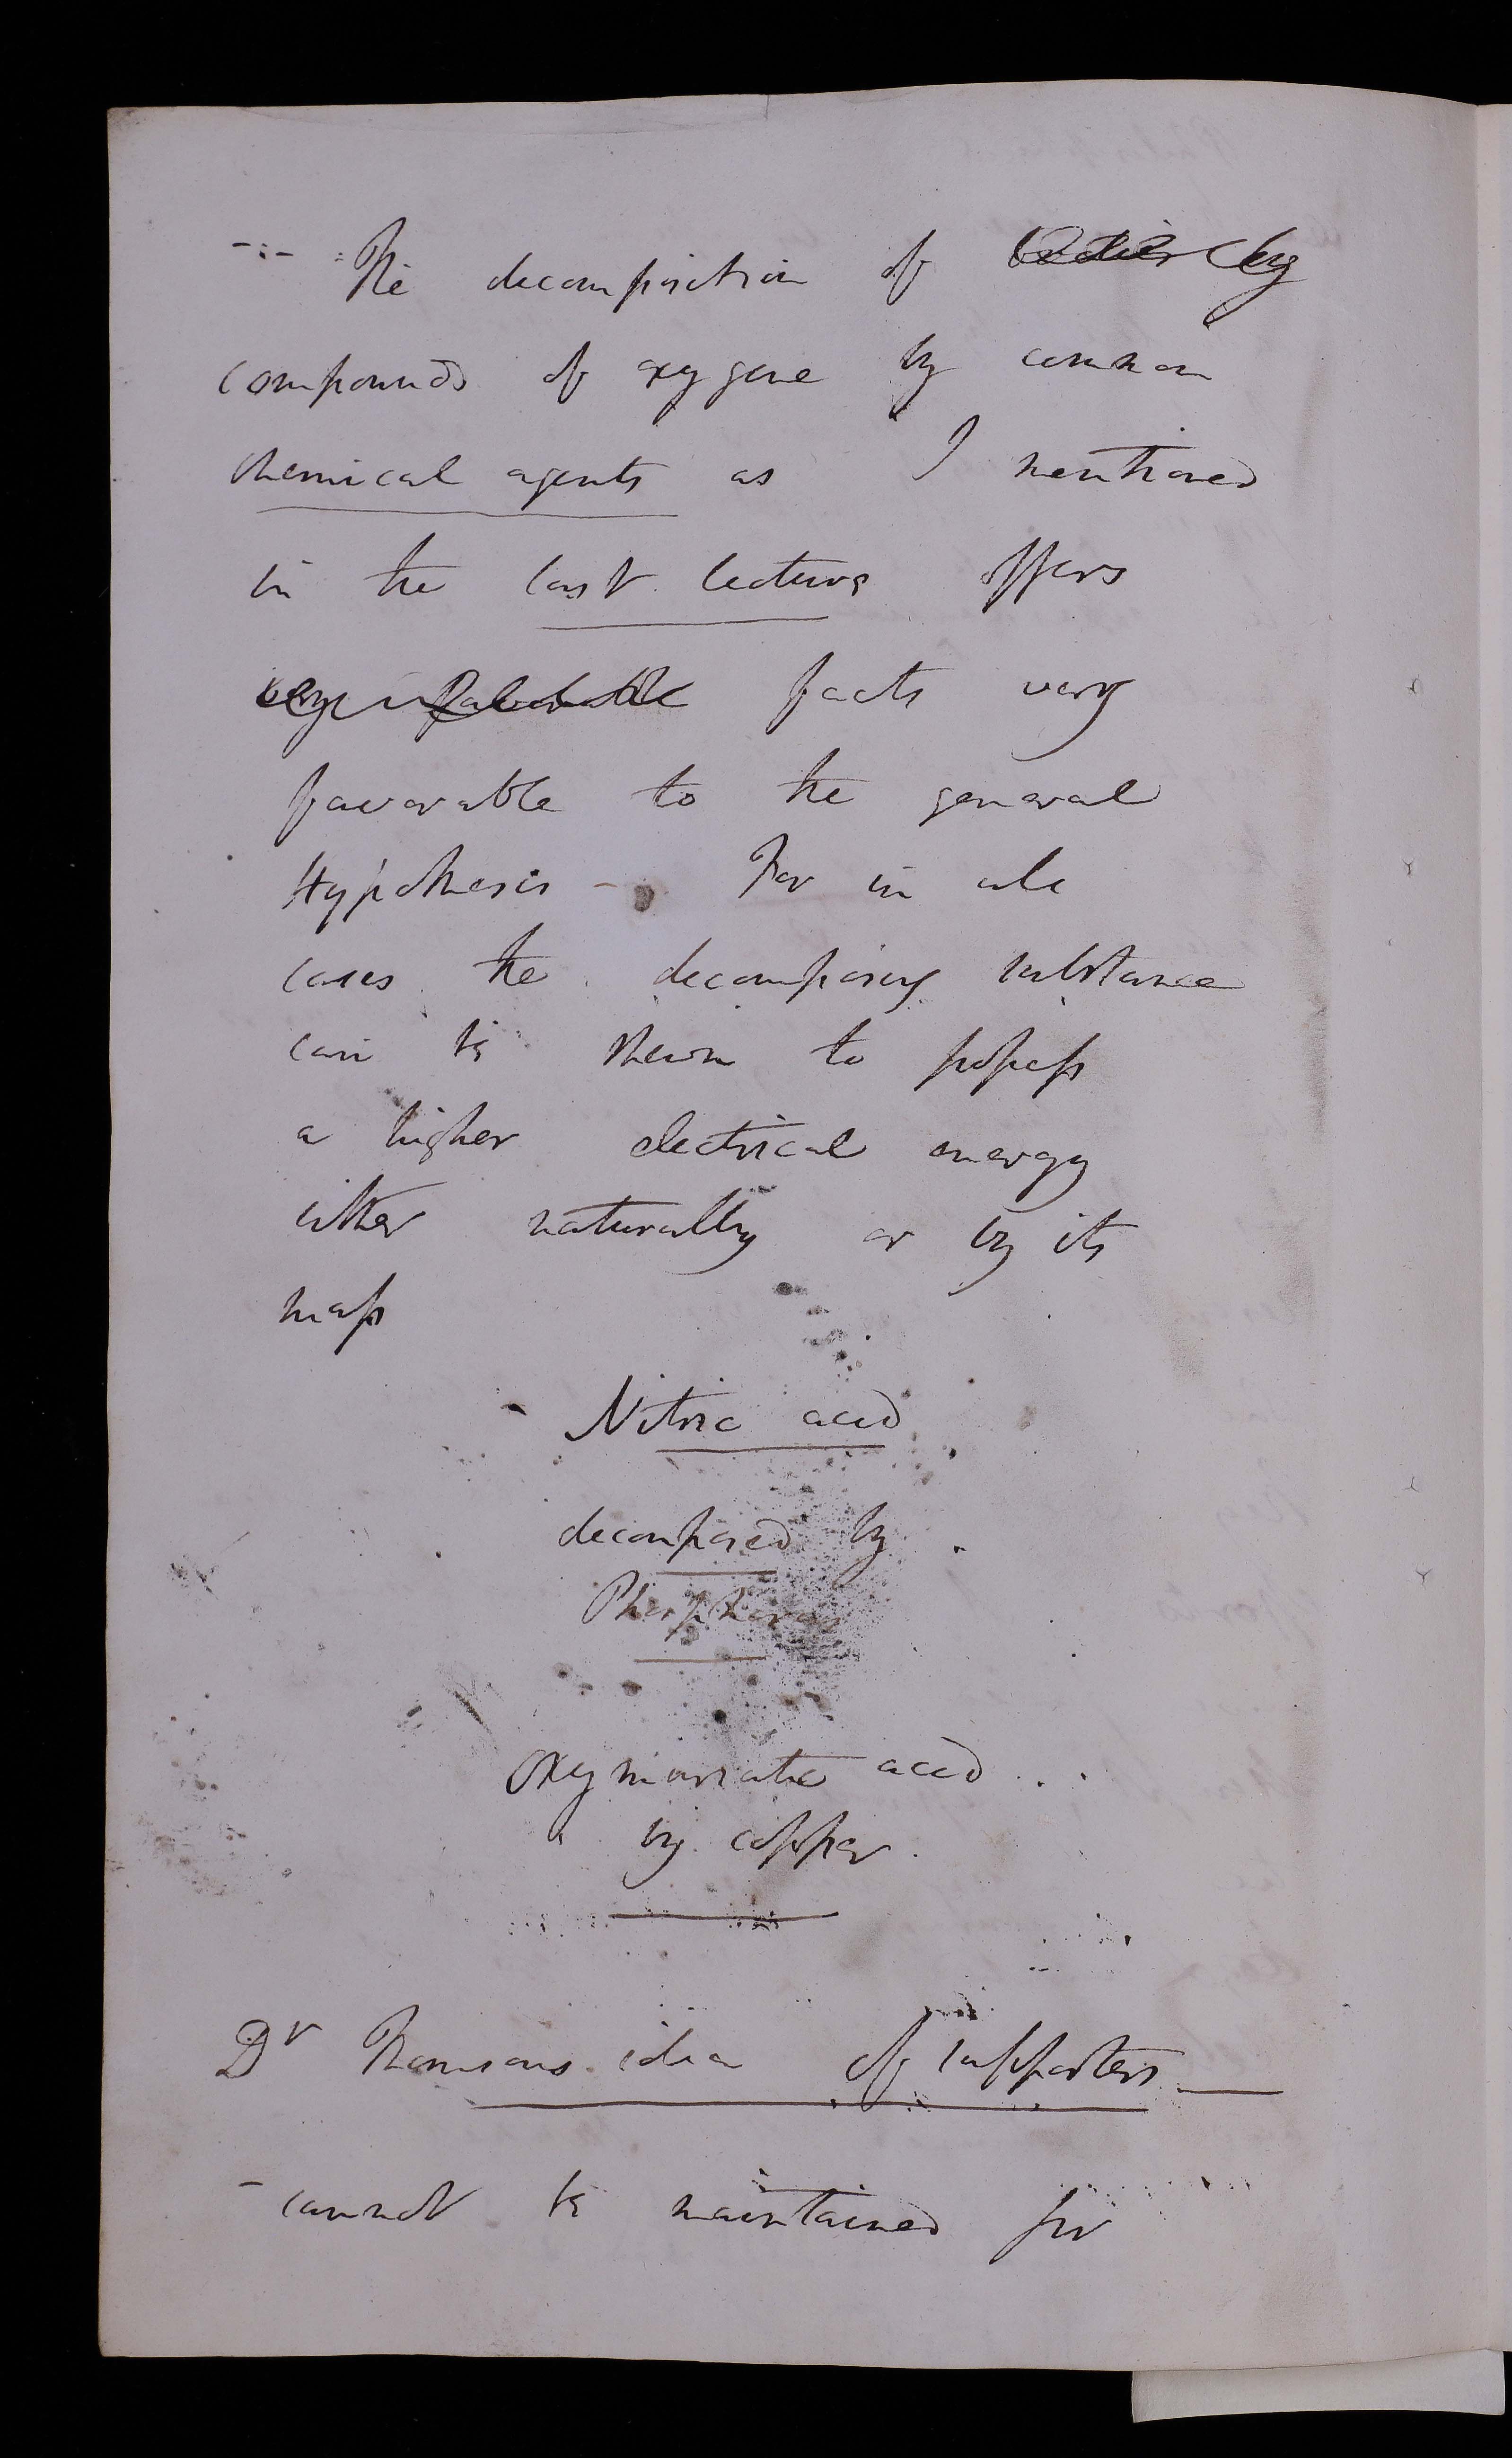 -:- The decomposition of bodies by
compounds of oxygene by common
chemical agents as I mentioned
in the last lecture offers
very favorable facts very
favorable to the general
Hypothesis - For in all
cases the decomposing substance
can be shewn to possess
a higher electrical energy
either naturally or by its
mass
- Nitric acid
decomposed by
Phosphorus
Oxymuriatic acid
by copper
Dr Thomsons idea of supporters
- cannot be maintained for